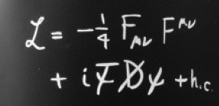 ℒ = -¼ F_μν F^μν
+ i ψ̄ D̸ ψ + h.c.